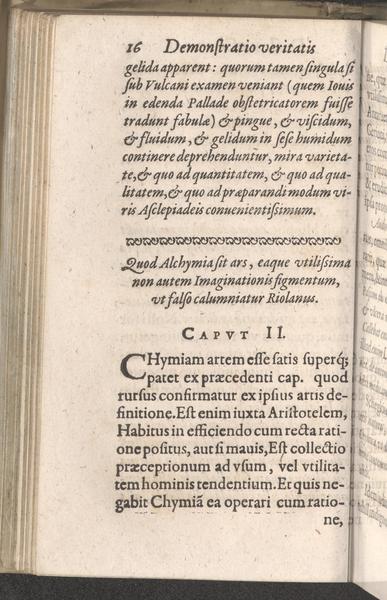 16 Demonſtratio veritatis
gelida apparent: quorum tamen ſingula ſi
ſub Vulcani examen veniant (quem Iouis
in edenda Pallade obſtetricatorem fuiſſe
tradunt fabulæ) & pingue, & viſcidum,
& fluidum, & gelidum in ſeſe humidum
continere deprehenduntur, mira varieta-
te, & quo ad quantitatem, & quo ad qua-
litatem, & quo ad præparandi modum vi-
ris Aſclepiadeis conuenientiſſimum.
Quod Alchymia ſit ars, eaque vtiliſſima
non autem Imaginationis figmentum,
vt falſo calumniatur Riolanus.
CAPVT II.
CHymiam artem eſſe ſatis ſuperq́;
patet ex præcedenti cap. quod
rurſus confirmatur ex ipſius artis de-
finitione. Eſt enim iuxta Ariſtotelem,
Habitus in efficiendo cum recta rati-
one poſitus, aut ſi mauis, Eſt collectio
præceptionum ad vſum, vel vtilita-
tem hominis tendentium. Et quis ne-
gabit Chymiā ea operari cum ratio-
ne,